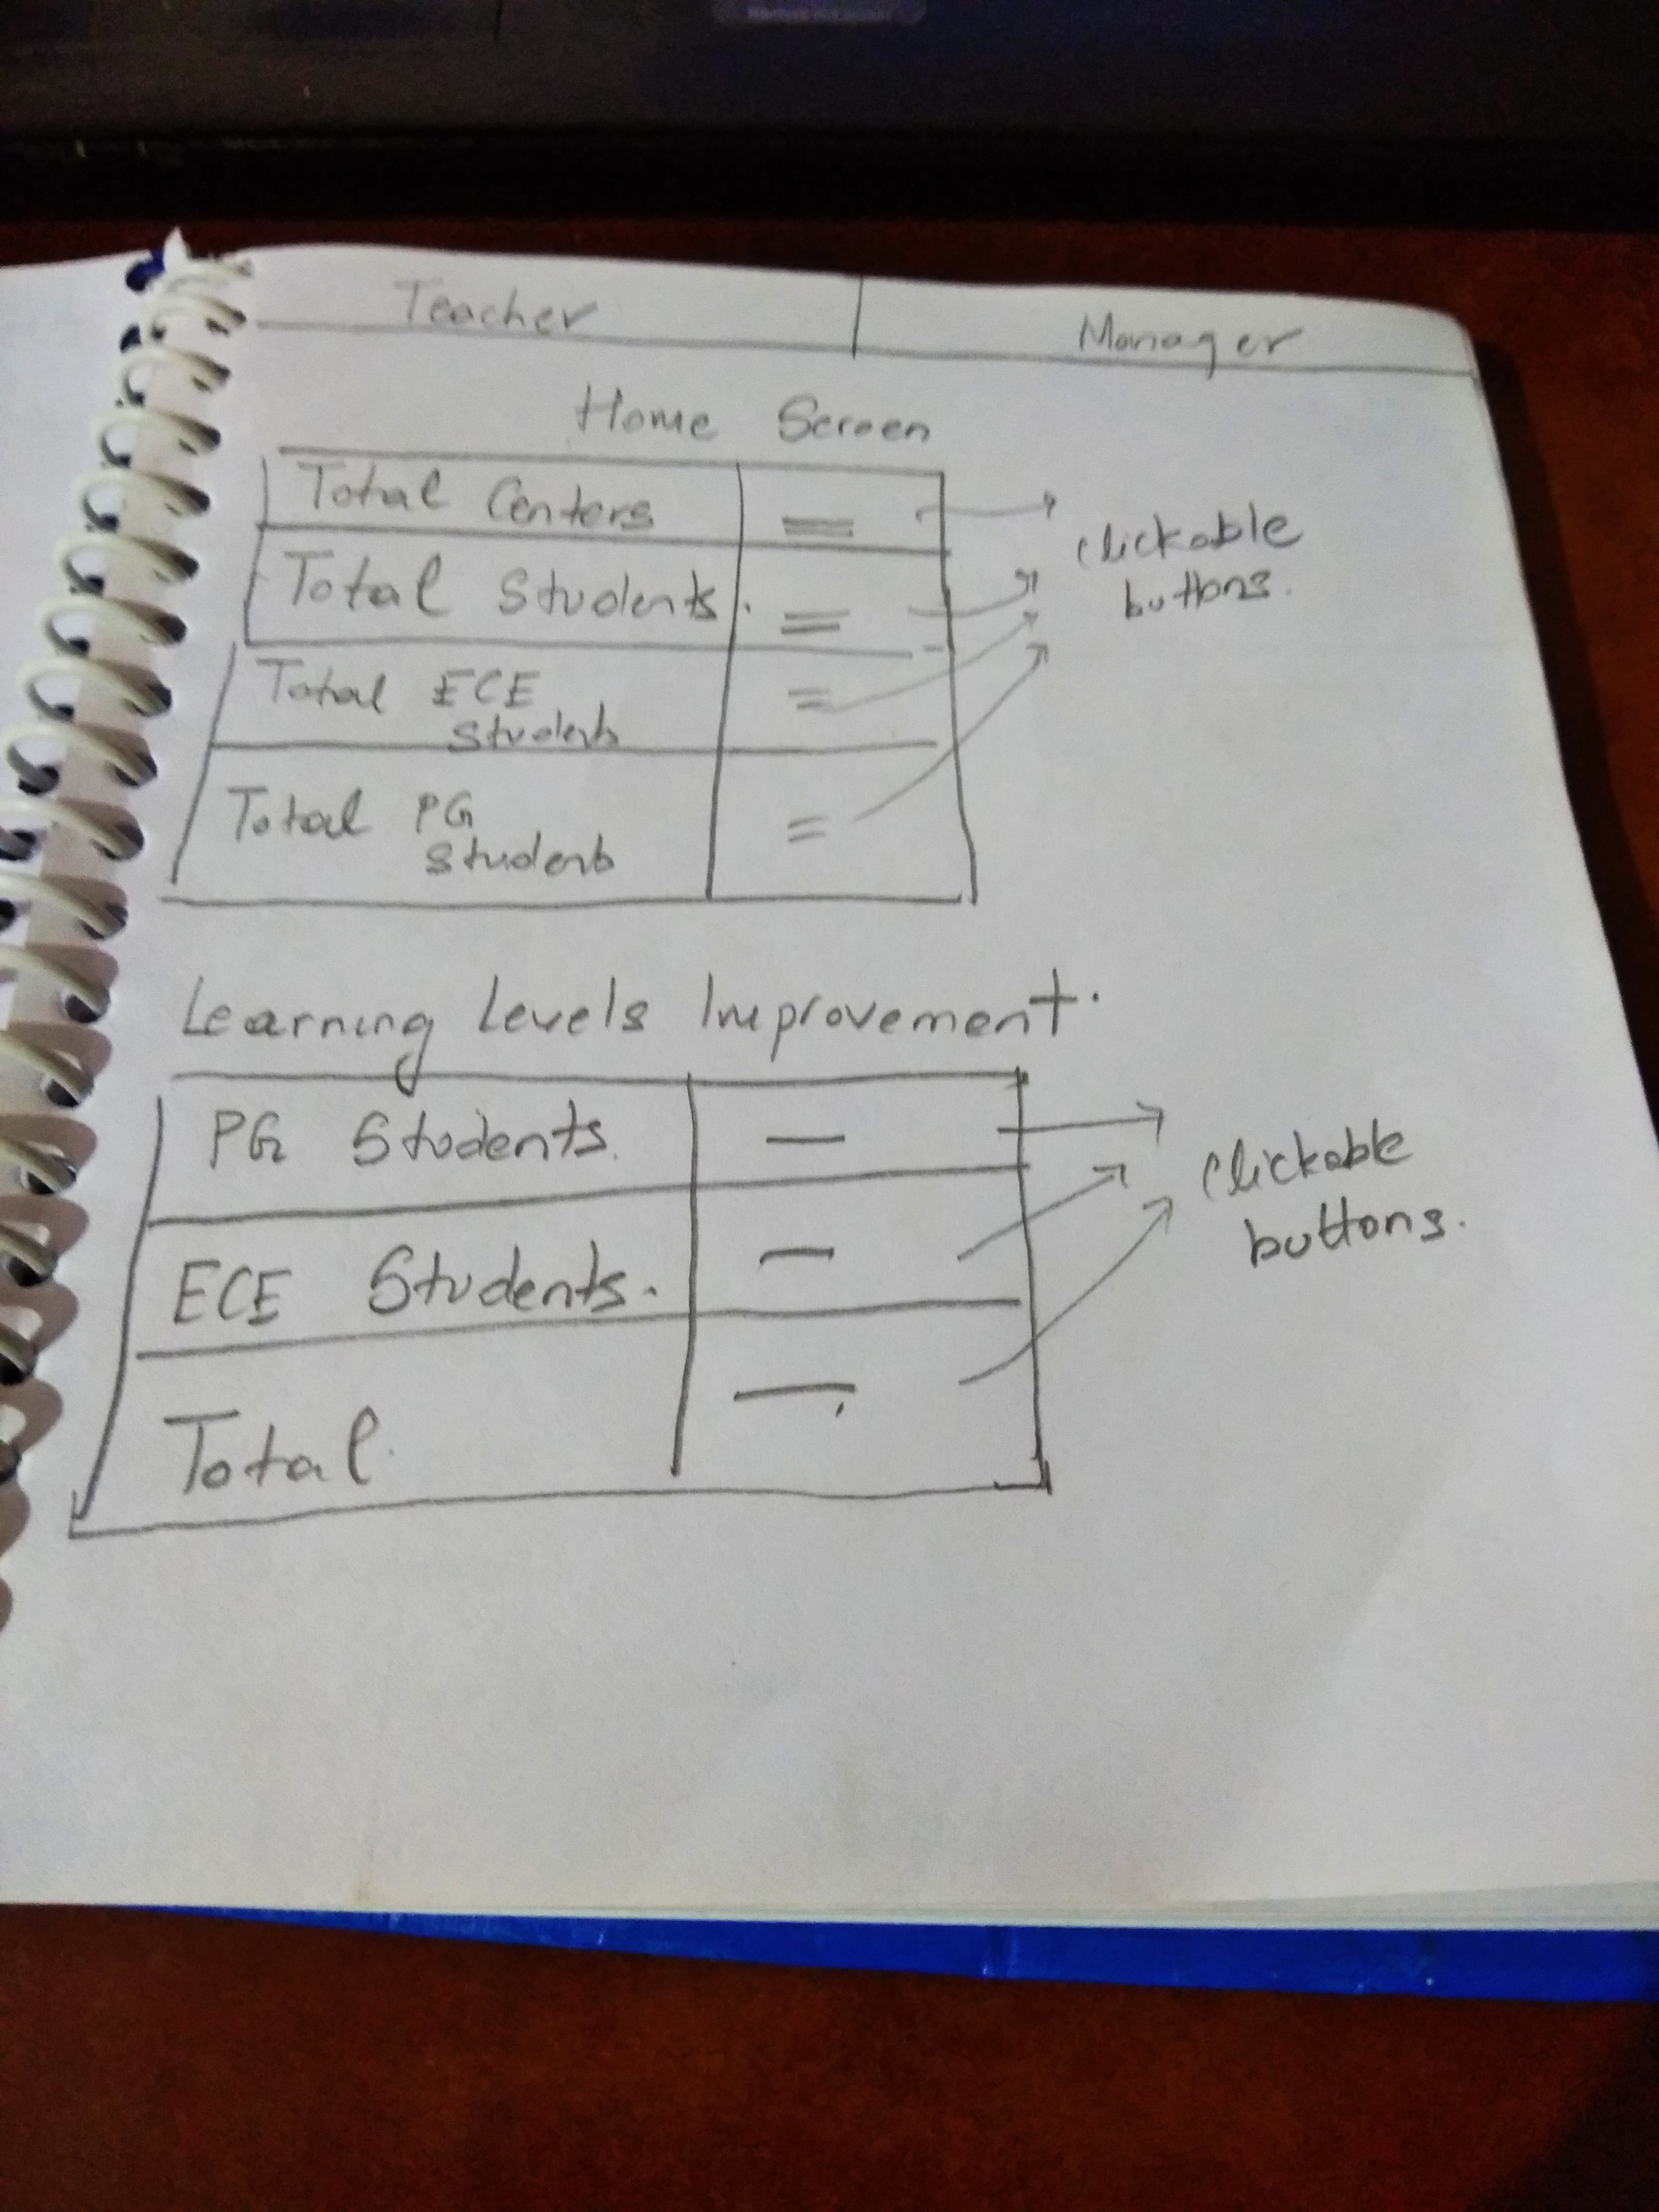 Teacher
Manager
Home Screen
Total Centers
Total Students.
Total ECE
Students
Total PG
Students
clickable
buttons.
Learning Levels Improvement.
PG Students.
ECE Students.
Total.
clickable
buttons.